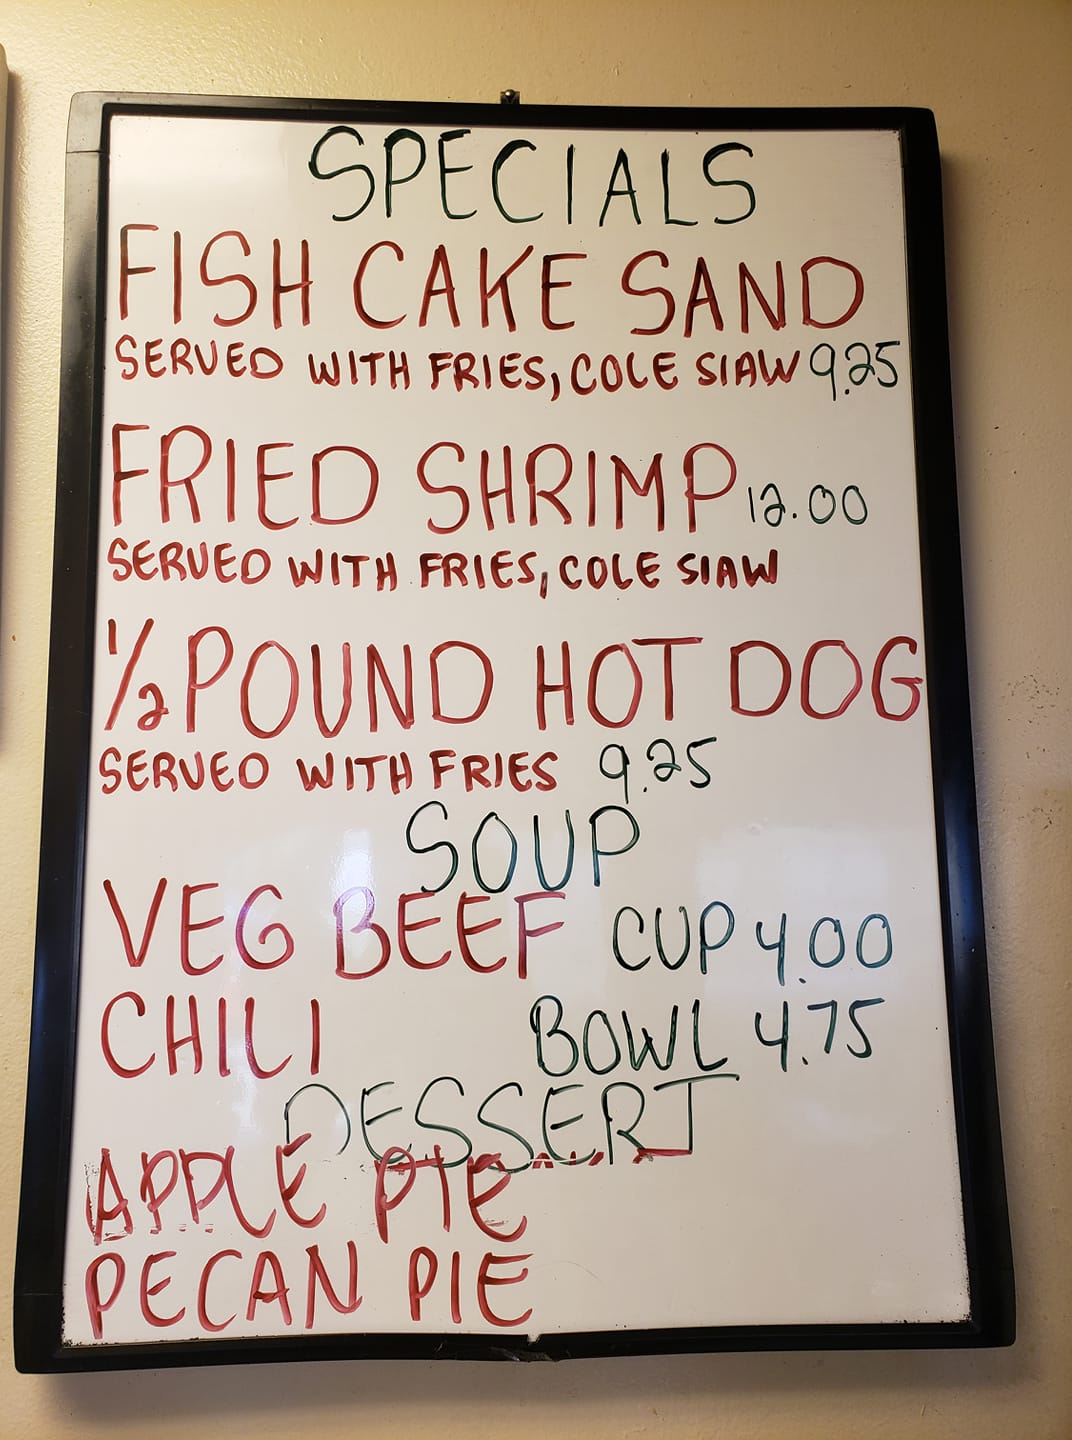 SPECIALS
FISH CAKE SAND
SERVED WITH FRIES, COLE SLAW 9.25
FRIED SHRIMP 12.00
SERVED WITH FRIES, COLE SLAW
1/2 POUND HOT DOG
SERVED WITH FRIES 9.25
SOUP
VEG BEEF CUP 4.00
CHILI BOWL 4.75
DESSERT
APPLE PIE
PECAN PIE